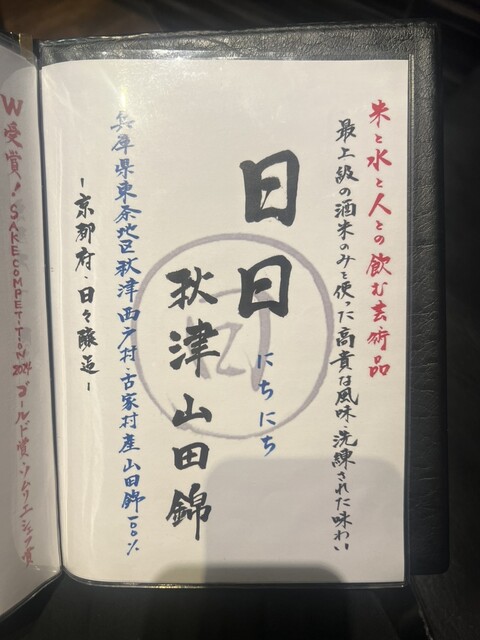 米と水と人との飲む芸術品
最上級の酒米のみを使った高貴な風味・洗練された味わい
日日
にちにち
秋津山田錦
兵庫県東条地区秋津西戸村・古家村産山田錦一〇〇%
-京都府・日々醸造-
W受賞!SAKE COMPETITION 2024 ゴールド賞・ソムリエ